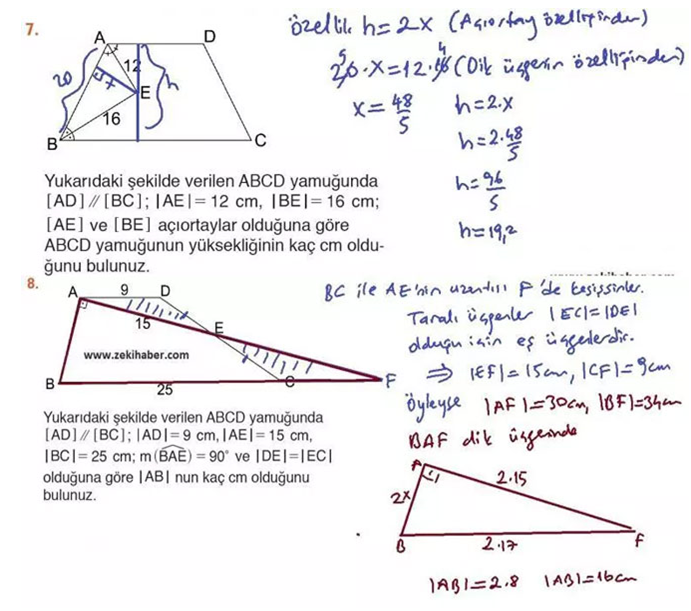 7.
A
D
20
12
h
x
E
16
B
C
özellik h=2x (Açıortay özelliğinden)
20·x=12·16 (Dik üçgenin özelliğinden)
5
4
x=48/5
h=2.x
h=2.48/5
h=96/5
h=19,2
Yukarıdaki şekilde verilen ABCD yamuğunda
[AD] // [BC]; |AE|= 12 cm, |BE|= 16 cm;
[AE] ve [BE] açıortaylar olduğuna göre
ABCD yamuğunun yüksekliğinin kaç cm oldu-
ğunu bulunuz.
8.
A
9
D
15
E
www.zekihaber.com
B
25
C
F
BC ile AE'nin uzantısı F'de kesişsinler.
Taralı üçgenler |EC|=|DE|
olduğu için eş üçgenlerdir.
⇒ |EF|=15cm, |CF|=9cm
Öyleyse |AF|=30cm, |BF|=34cm
BAF dik üçgeninde
Yukarıdaki şekilde verilen ABCD yamuğunda
[AD] // [BC]; |AD|= 9 cm, |AE|= 15 cm,
|BC|= 25 cm; m(BAE) = 90° ve |DE|=|EC|
olduğuna göre |AB| nun kaç cm olduğunu
bulunuz.
A
2.15
2x
B
2.17
F
|AB|=2.8 |AB|=16cm